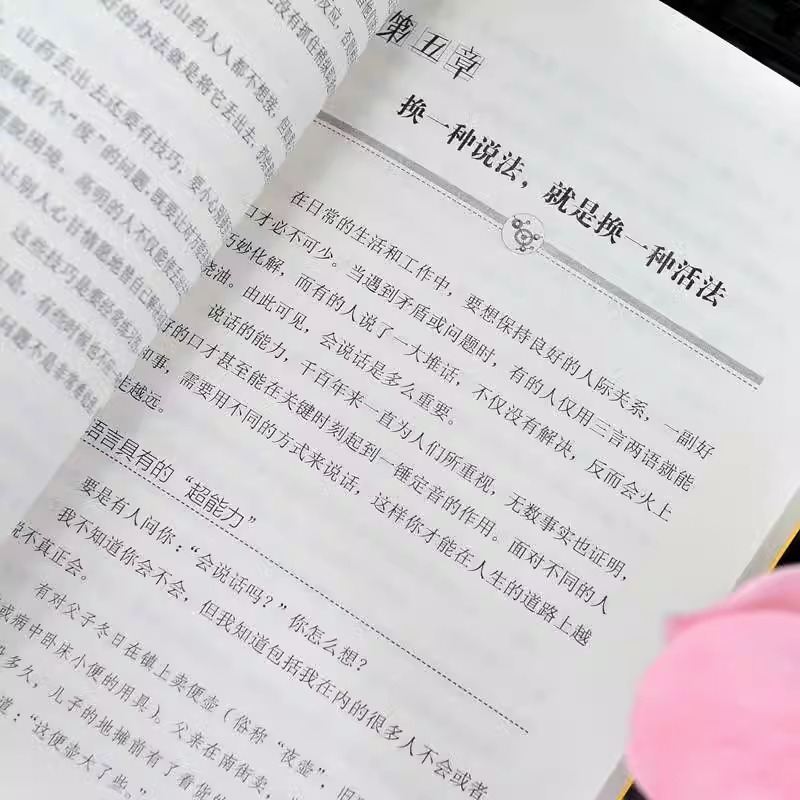 反应，否
没有抓住稍纵即
山药人人都不想接，但如
好的办法就是将它丢出去，
山药丢出去还要有技巧，要小心别
就有个“度”的问题，既要让对方
脱困境。高明的人不仅能
让别人心甘情愿地替自己
这些技巧是要经常练习
问题不是非常
第五章
换一种说法，就是换一种活法
在日常的生活和工作中，要想保持良好的人际关系，一副好
口才必不可少。当遇到矛盾或问题时，有的人仅用三言两语就能
巧妙化解，而有的人说了一大堆话，不仅没有解决，反而会火上
浇油。由此可见，会说话是多么重要。
说话的能力，千百年来一直为人们所重视，无数事实也证明，
好的口才甚至能在关键时刻起到一锤定音的作用。面对不同的人
和事，需要用不同的方式来说话，这样你才能在人生的道路上越
走越远。
语言具有的“超能力”
要是有人问你：“会说话吗？”你怎么想？
我不知道你会不会，但我知道包括我在内的很多人不会或者
说不真正会。
有对父子冬日在镇上卖便壶（俗称“夜壶”，旧
或病中卧床小便的用具）。父亲在南街卖，
没多久，儿子的地摊前有了看货的
道：“这便壶大了些。”